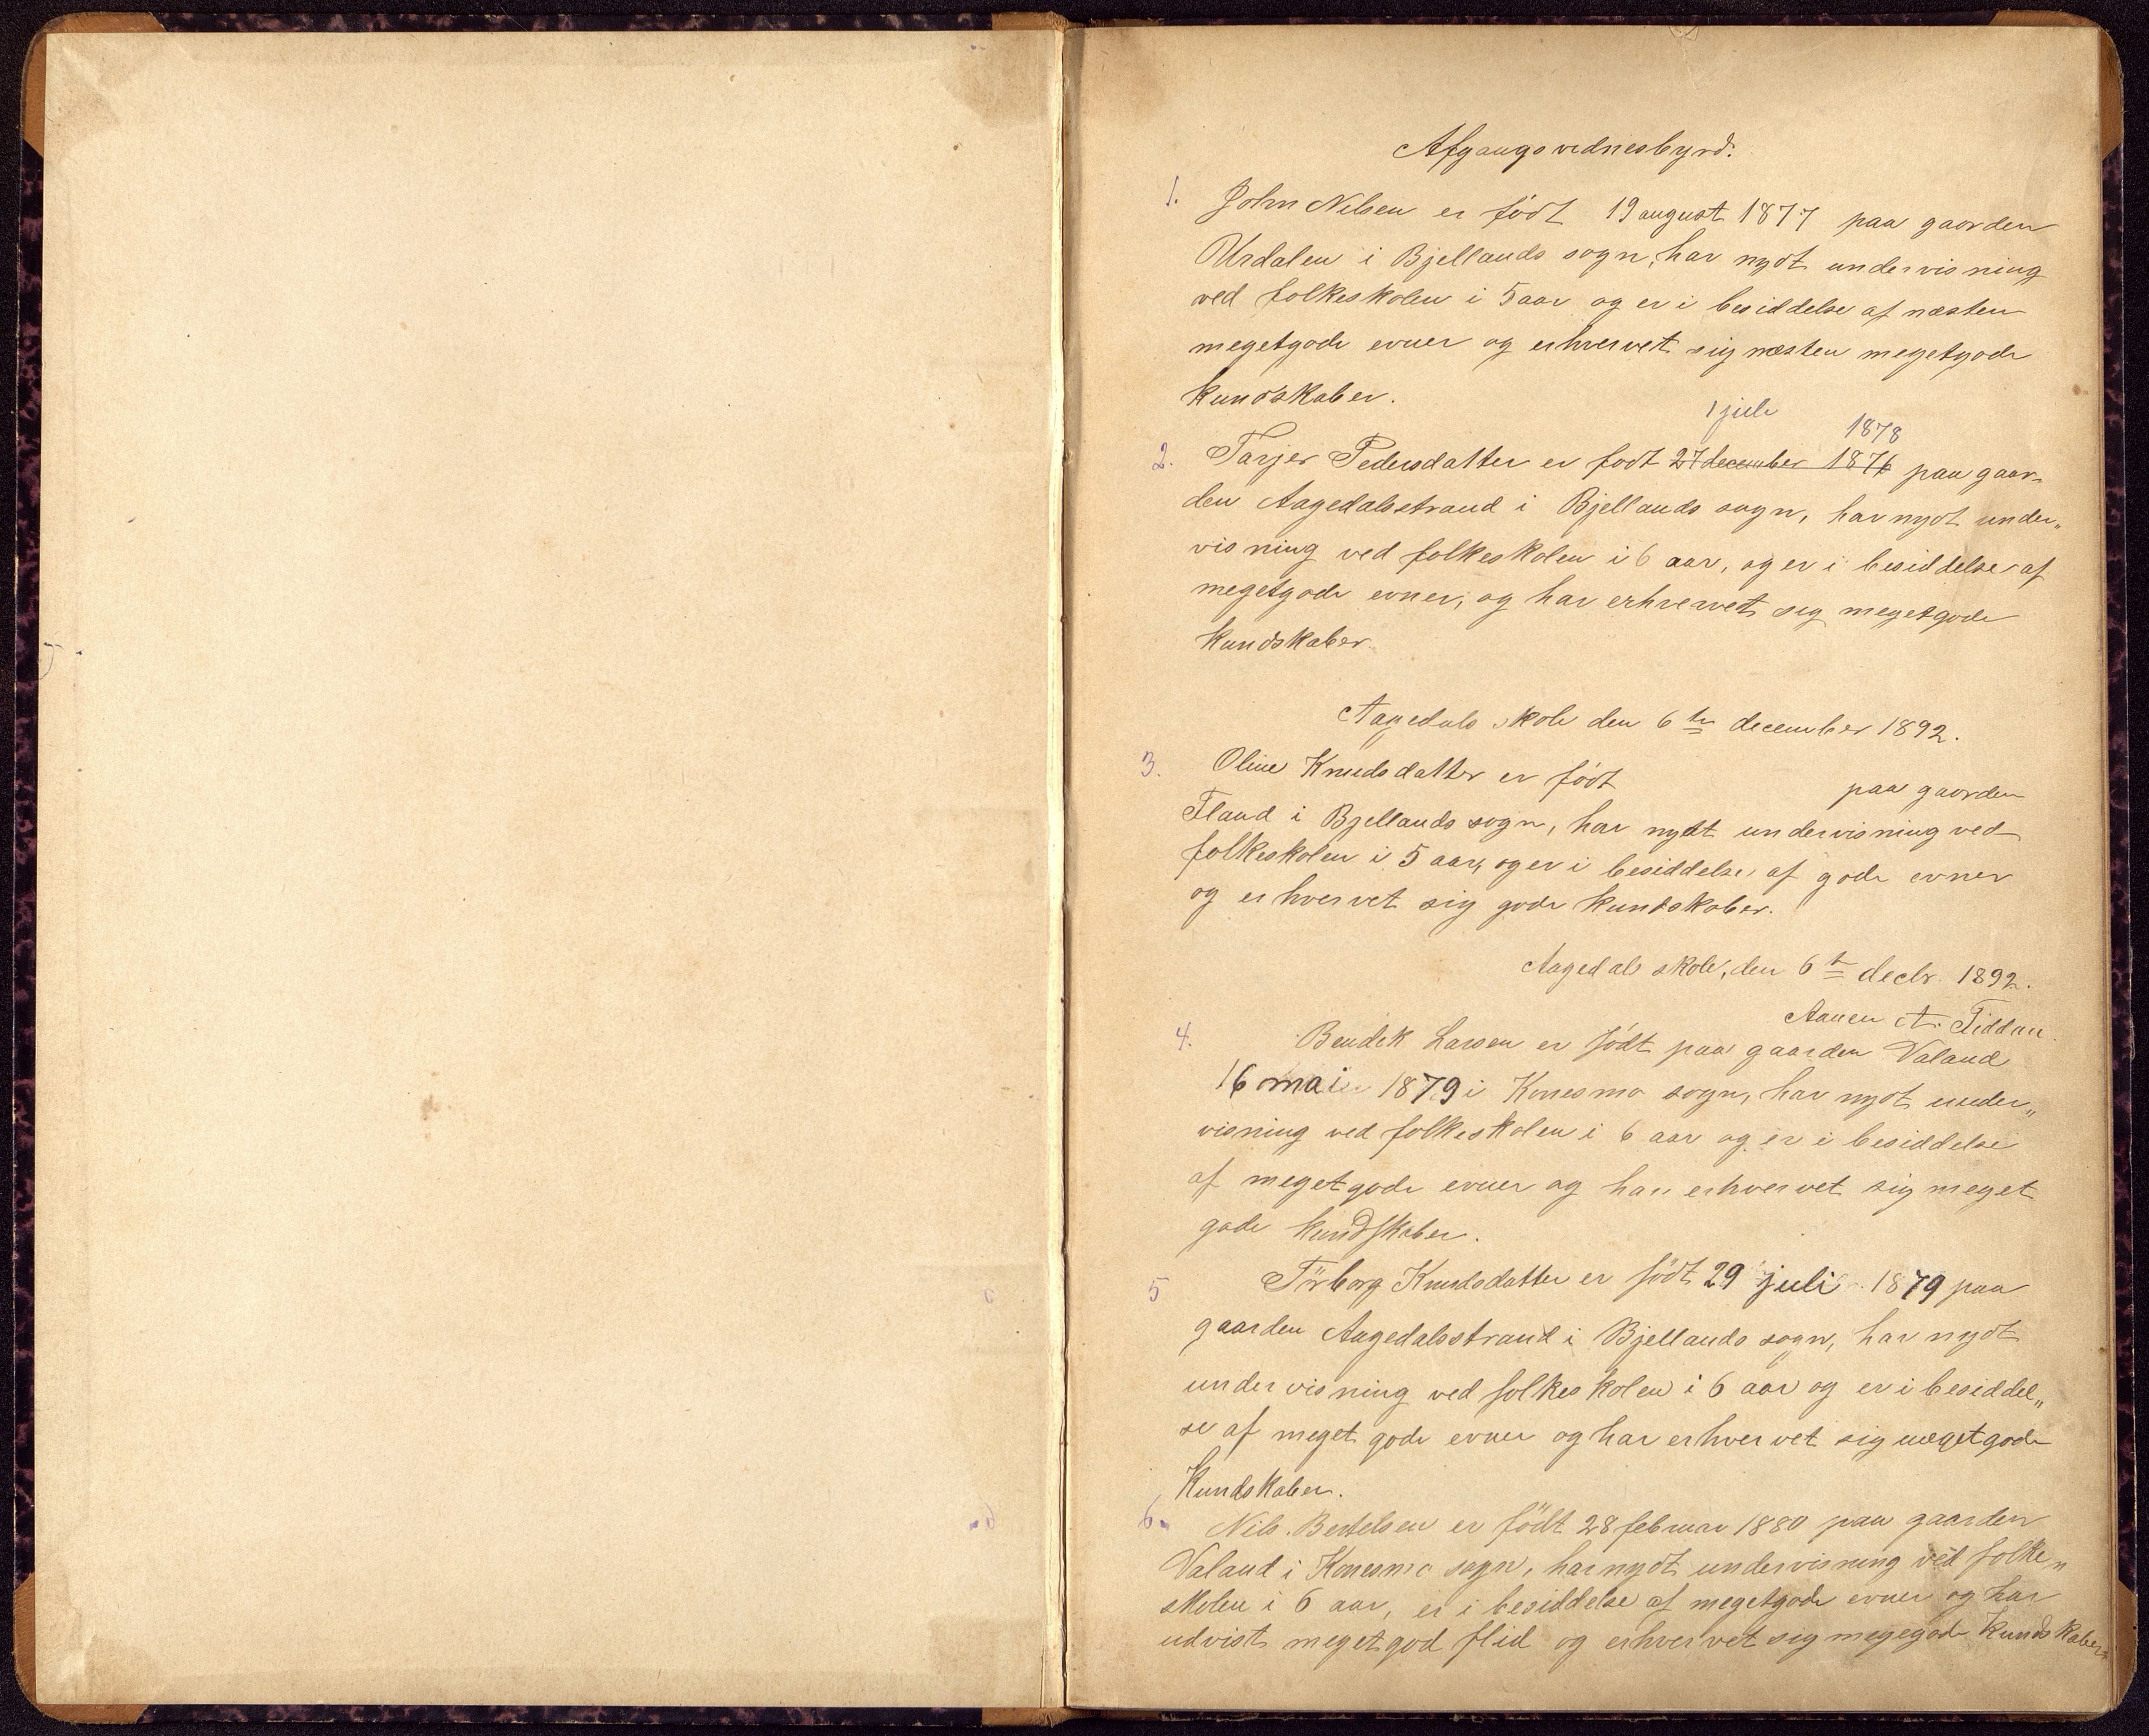 Afgangsvidnesbyrd.
1. John Nilsen er födt 19 august 1877 paa gaarden
Urdalen i Bjellands sogn, har nydt undervisning
ved folkeskolen i 5 aar og er i besiddelse af næsten
megetgode evner og erhvervet sig næsten megetgode
kundskaber.
1 juli
1878
2. Tarjer Pedersdatter er født 27 december 1876 paa gaar-
den Aagedalsstrand i Bjellands sogn, har nydt under„
visning ved folkeskolen i 6 aar, og er i besiddelse af
megetgode evner, og har erhvervet sig megetgode
kundskaber.
Aagedals skole den 6te december 1892.
3. Oline Knudsdatter er födt paa gaarden
Fland i Bjellands sogn, har nydt undervisning ved
folkeskolen i 5 aar, og er i besiddelse af gode evner
og erhvervet sig gode kundskaber.
Aagedals skole, den 6te decbr. 1892.
Aanen A.
4. Bendik Larsen er födt paa gaarden Valand
16 mai 1879 i Konesmo sogn, har nydt under„
visning ved folkeskolen i 6 aar og er i besiddelse
af megetgode evner og har erhvervet sig meget
gode kundskaber.
5 Törborg Knudsdatter er födt 29 juli 1879 paa
gaarden Aagedalsstrand i Bjellands sogn, har nydt
undervisning ved folkeskolen i 6 aar og er i besiddel„
se af meget gode evner og har erhvervet sig megetgode
Kundskaber.
6. Nils Bertelsen er födt 28 februar 1880 paa gaarden
Valand i Konesmo sogn, har nydt undervisning ved folke„
skolen i 6 aar, er i besiddelse af megetgode evner og har
udvist megetgod flid og erhvervet sig megegode Kundskaber.